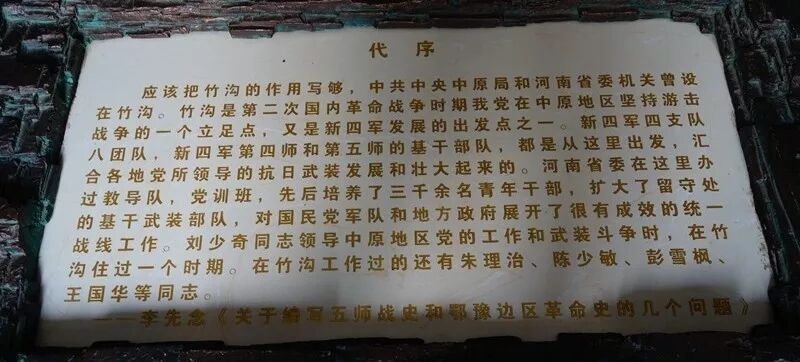 代序
应该把竹沟的作用写够，中共中央中原局和河南省委机关曾设
在竹沟。竹沟是第二次国内革命战争时期我党在中原地区坚持游击
战争的一个立足点，又是新四军发展的出发点之一。新四军四支队
八团队，新四军第四师和第五师的基干部队，都是从这里出发，汇
合各地党所领导的抗日武装发展和壮大起来的。河南省委在这里办
过教导队，党训班，先后培养了三千余名青年干部，扩大了留守处
的基干武装部队，对国民党军队和地方政府展开了很有成效的统一
战线工作。刘少奇同志领导中原地区党的工作和武装斗争时，在竹
沟住过一个时期。在竹沟工作过的还有朱理治、陈少敏、彭雪枫、
王国华等同志。
——李先念《关于编写五师战史和鄂豫边区革命史的几个问题》